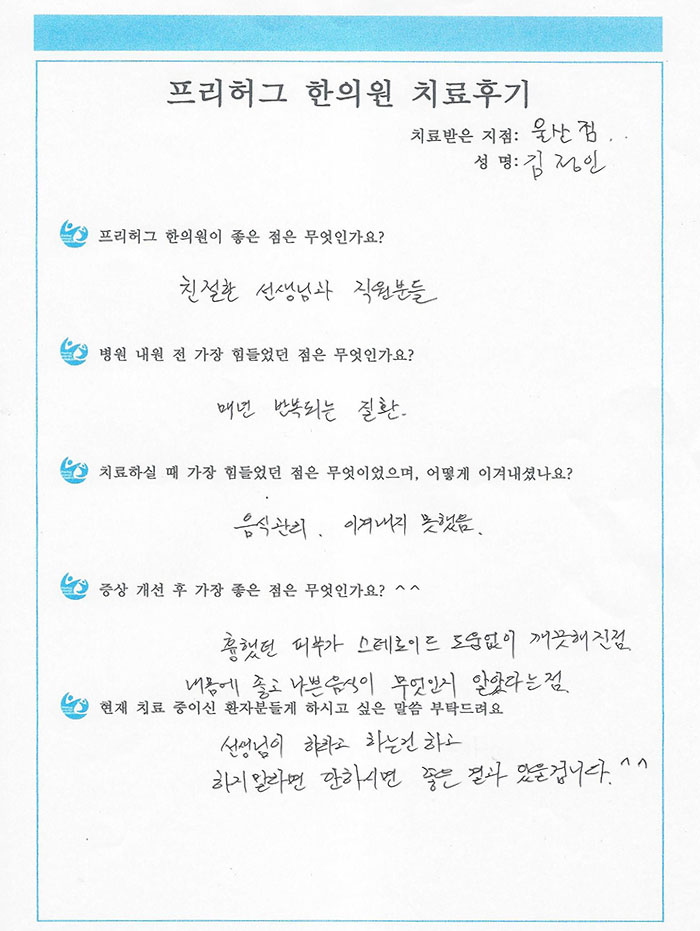 프리허그 한의원 치료후기
치료받은 지점: 울산점..
성 명: 김정인
프리허그 한의원이 좋은 점은 무엇인가요?
친절한 선생님과 직원분들
병원 내원 전 가장 힘들었던 점은 무엇인가요?
매년 반복되는 질환.
치료하실 때 가장 힘들었던 점은 무엇이었으며, 어떻게 이겨내셨나요?
음식관리. 이겨내지 못했음.
증상 개선 후 가장 좋은 점은 무엇인가요? ^^
흉했던 피부가 스테로이드 도움없이 깨끗해진점
내몸에 좋고 나쁜음식이 무엇인지 알았다는점
현재 치료 중이신 환자분들게 하시고 싶은 말씀 부탁드려요
선생님이 하라고 하는건하고
하지말라면 안하시면 좋은 결과 있을겁니다.^^